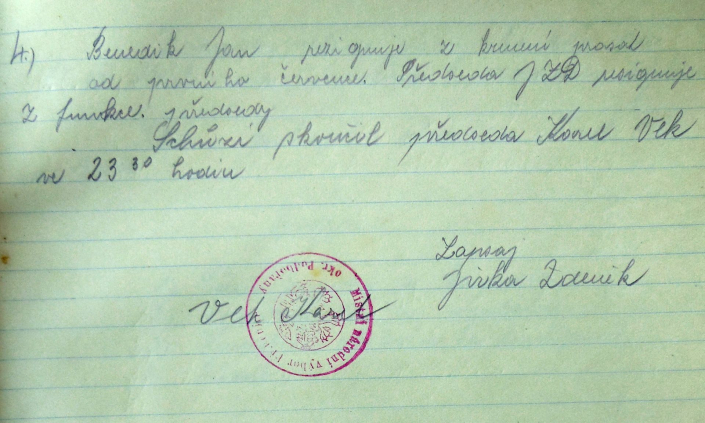 4.) Benedik Jan reziguje z krmení prasat
od prvního července. Předseda JZD resiguje
z funkce. předsedy
Schůzi skončil předseda Karel Vlk
ve 23 30 hodin
Zapsaj
Jirka Zdeněk
Vlk Karel
Místní národní výbor
okr. Podbořany